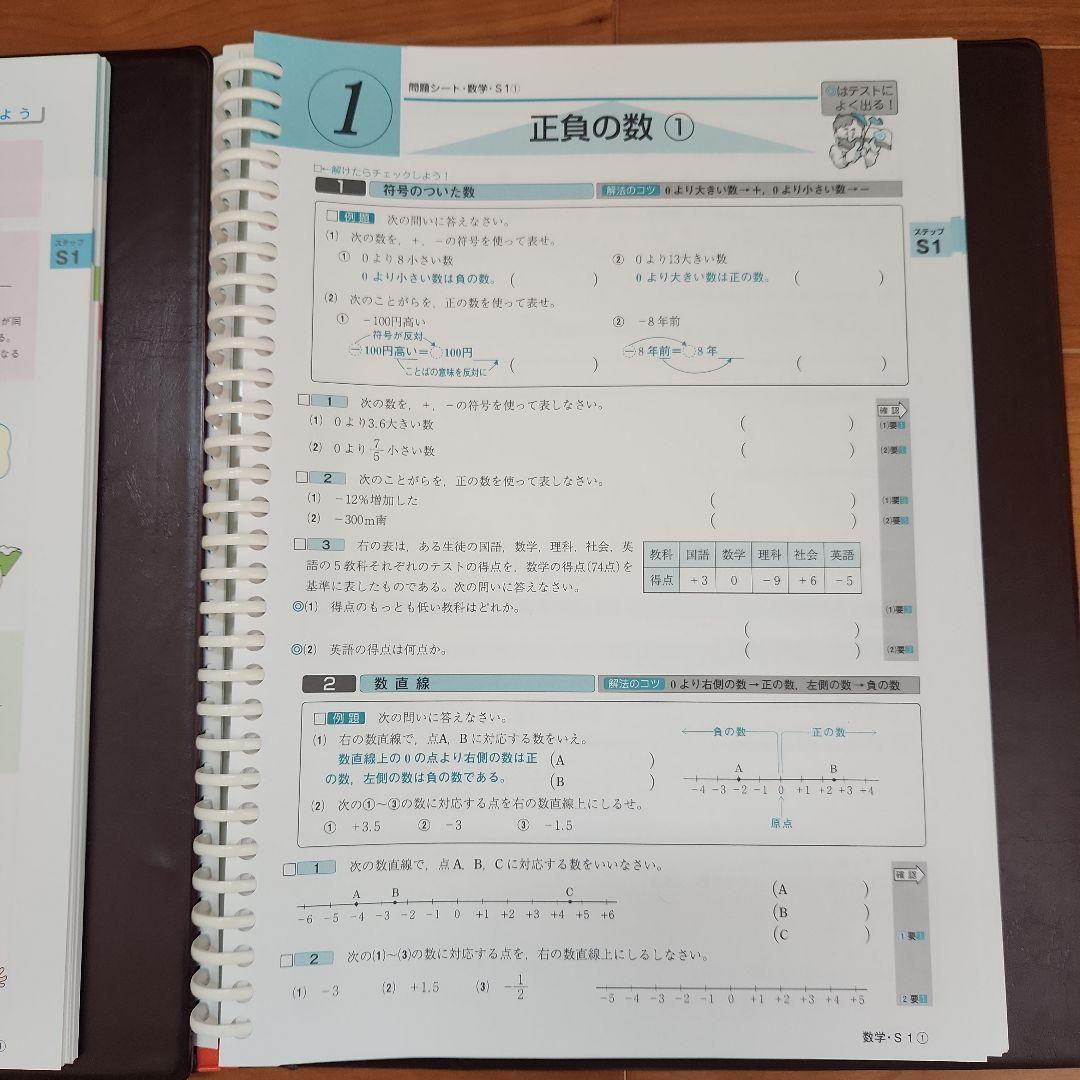 よう
ステップ
S1
が同
る。
なる
1
問題シート・数学・S1①
正負の数 ①
◎はテストに
よく出る！
□←解けたらチェックしよう！
1 符号のついた数 解法のコツ 0より大きい数→＋，0より小さい数→－
□例題 次の問いに答えなさい。
(1) 次の数を，＋，－の符号を使って表せ。
① 0より8小さい数 ② 0より13大きい数
0より小さい数は負の数。( ) 0より大きい数は正の数。( )
(2) 次のことがらを，正の数を使って表せ。
① －100円高い ② －8年前
符号が反対
－100円高い＝ 100円 ( ) －8年前＝ 8年 ( )
ことばの意味を反対に
□ 1 次の数を，＋，－の符号を使って表しなさい。
確認
(1) 0より3.6大きい数 ( ) (1)要1
(2) 0より7/5小さい数 ( ) (2)要1
□ 2 次のことがらを，正の数を使って表しなさい。
(1) －12%増加した ( ) (1)要
(2) －300m南 ( ) (2)要
□ 3 右の表は，ある生徒の国語，数学，理科，社会，英
語の5教科それぞれのテストの得点を，数学の得点(74点)を
基準に表したものである。次の問いに答えなさい。
教科 国語 数学 理科 社会 英語
得点 ＋3 0 －9 ＋6 －5
◎(1) 得点のもっとも低い教科はどれか。 (1)要
( )
◎(2) 英語の得点は何点か。 ( ) (2)要
2 数直線 解法のコツ 0より右側の数→正の数，左側の数→負の数
□例題 次の問いに答えなさい。
(1) 右の数直線で，点A，Bに対応する数をいえ。
数直線上の0の点より右側の数は正 (A )
の数，左側の数は負の数である。 (B )
負の数 正の数
A B
－4 －3 －2 －1 0 ＋1 ＋2 ＋3 ＋4
原点
(2) 次の①～③の数に対応する点を右の数直線上にしるせ。
① ＋3.5 ② －3 ③ －1.5
□ 1 次の数直線で，点A，B，Cに対応する数をいいなさい。
確認
A B C
－6 －5 －4 －3 －2 －1 0 ＋1 ＋2 ＋3 ＋4 ＋5 ＋6
(A )
(B )
(C ) 1要1
□ 2 次の(1)～(3)の数に対応する点を，右の数直線上にしるしなさい。
(1) －3 (2) ＋1.5 (3) －1/2
－5 －4 －3 －2 －1 0 ＋1 ＋2 ＋3 ＋4 ＋5
2要1
数学・S1①
ステップ
S1